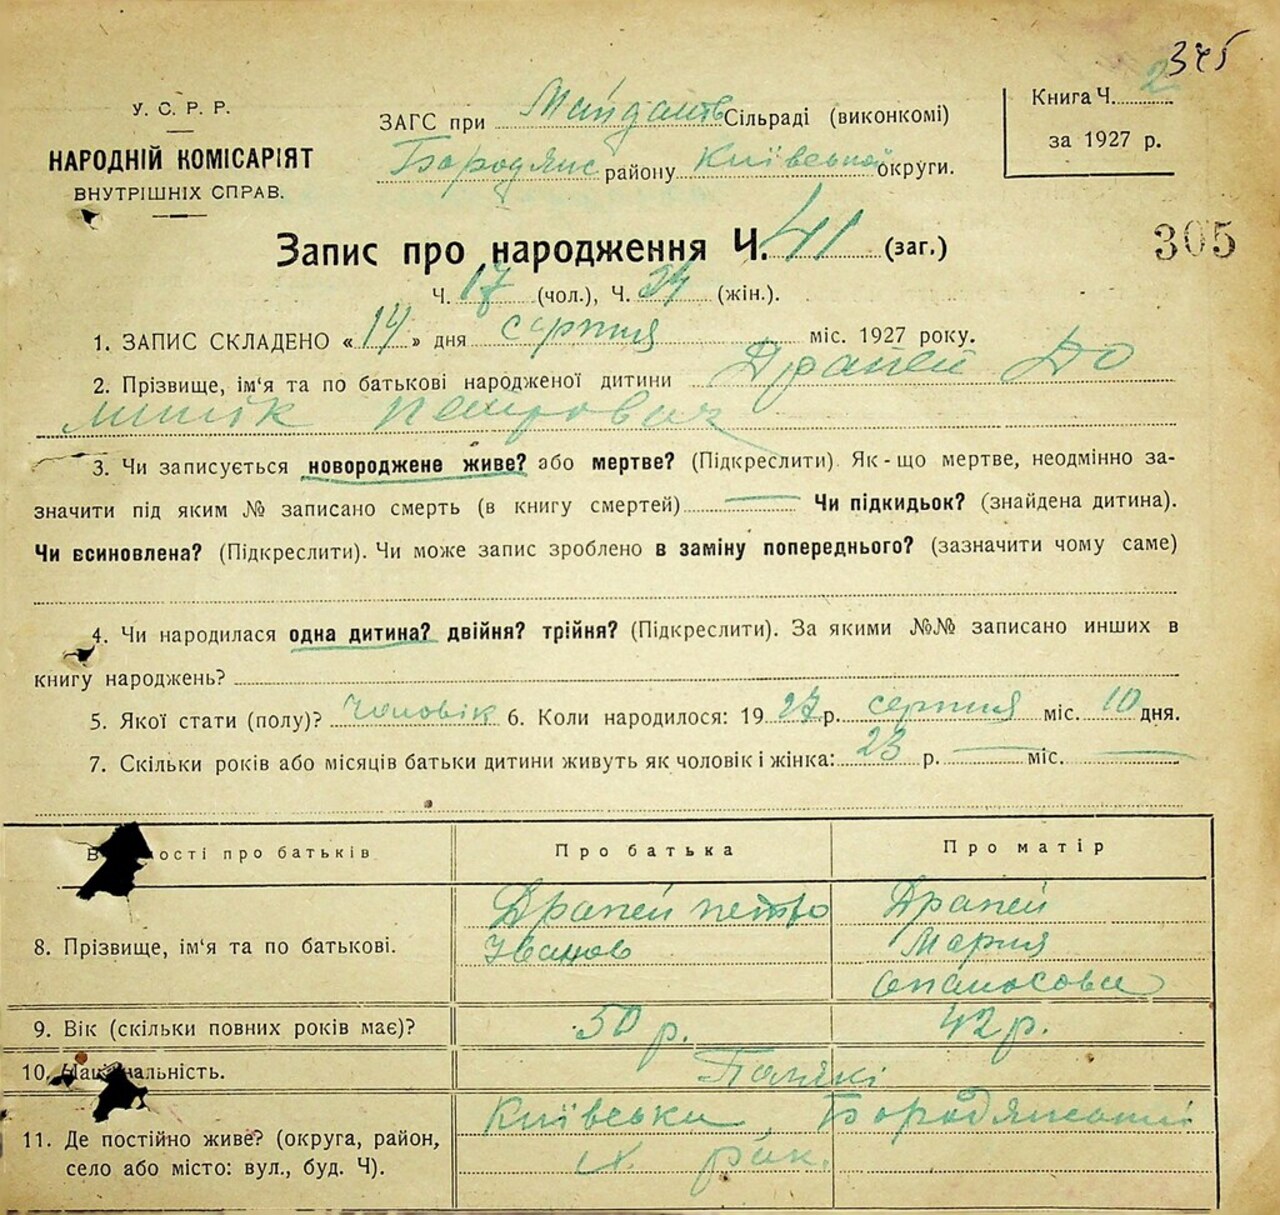 345
У. С. Р. Р.
НАРОДНІЙ КОМІСАРІЯТ
ВНУТРІШНІХ СПРАВ.
ЗАГС при Сільраді (виконкомі)
Бородянс району Київської округи.
Книга Ч. 2
за 1927 р.
305
Запис про народження Ч. 41 (заг.)
Ч. 17 (чол.), Ч. 24 (жін.).
1. ЗАПИС СКЛАДЕНО «14» дня серпня міс. 1927 року.
2. Прізвище, ім'я та по батькові народженої дитини Драпей До
минік Петрович
3. Чи записується новороджене живе? або мертве? (Підкреслити). Як-що мертве, неодмінно за-
значити під яким № записано смерть (в книгу смертей) — Чи підкидьок? (знайдена дитина).
Чи всиновлена? (Підкреслити). Чи може запис зроблено в заміну попереднього? (зазначити чому саме)
4. Чи народилася одна дитина? двійня? трійня? (Підкреслити). За якими №№ записано инших в
книгу народжень?
5. Якої стати (полу)? Чоловік 6. Коли народилося: 1927 р. серпня міс. 10 дня.
7. Скільки років або місяців батьки дитини живуть як чоловік і жінка: 23 р. — міс. —
В ості про батьків Про батька Про матір
8. Прізвище, ім'я та по батькові. Драпей Петро Драпей
Іванов Мария
Опанасовна
9. Вік (скільки повних років має)? 50 р. 42 р.
10. Національність. Поляки
11. Де постійно живе? (округа, район, Київська, Бородянський
село або місто: вул., буд. Ч). рай.